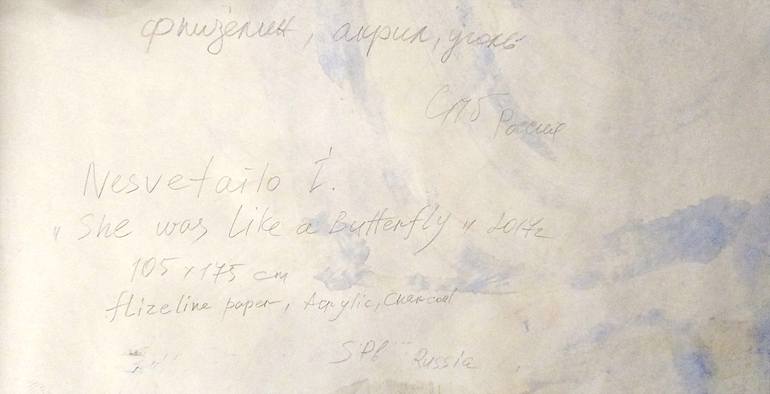 флизелин, акрил, уголь
СПб Россия
Nesvetailo I.
"She was like a Butterfly" 2017г
105 x 175 cm
flizeline paper, Acrylic, Charcoal
SPb Russia